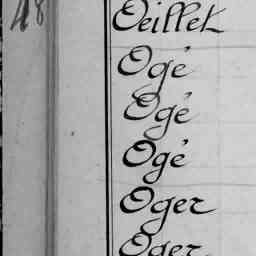 48
Oeillet
Ogé
Ogé
Ogé
Oger
Oger